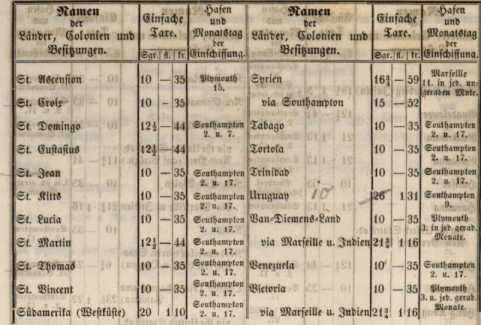 Namen
der
Länder, Colonien und
Besitzungen.
Einfache
Taxe.
Sgr. fl. kr.
Hafen
und
Monatstag
der
Einschiffung.
St. Ascension 10 — 35 Plymouth 15.
St. Croix 10 — 35 Southampton
St. Domingo 12½ — 44 Southampton 2. u. 7.
St. Eustasius 12½ — 44
St. Jean 10 — 35 Southampton 2. u. 17.
St. Kitts 10 — 35 Southampton 2. u. 17.
St. Lucia 10 — 35 Southampton 2. u. 17.
St. Martin 12½ — 44 Southampton 2. u. 17.
St. Thomas 10 — 35 Southampton 2. u. 17.
St. Vincent 10 — 35 Southampton 2. u. 17.
Südamerika (Westküste) 20 1 10 Southampton 2. u. 17.
Namen
der
Länder, Colonien und
Besitzungen.
Einfache
Taxe.
Sgr. fl. kr.
Hafen
und
Monatstag
der
Einschiffung.
Syrien 16¾ — 59 Marseille 11. in jed. ungeraden Mnte.
via Southampton 15 — 52
Tabago 10 — 35 Southampton 2. u. 17.
Tortola 10 — 35 Southampton 2. u. 17.
Trinidad 10 — 35 Southampton 2. u. 17.
Uruguay 10 26 1 31 Southampton 9.
Van-Diemens-Land 10 — 35 Plymouth 3. in jed gerad. Monate.
via Marseille u. Indien 21¾ 1 16
Venezuela 10 — 35 Southampton 2. u. 17.
Victoria 10 — 35 Plymouth 3. u. jed gerad. Monate.
via Marseille u. Indien 21¾ 1 16